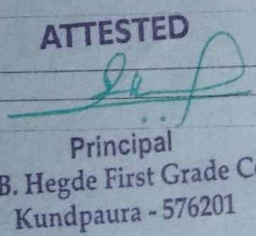 ATTESTED
Principal
B. Hegde First Grade C
Kundpaura - 576201